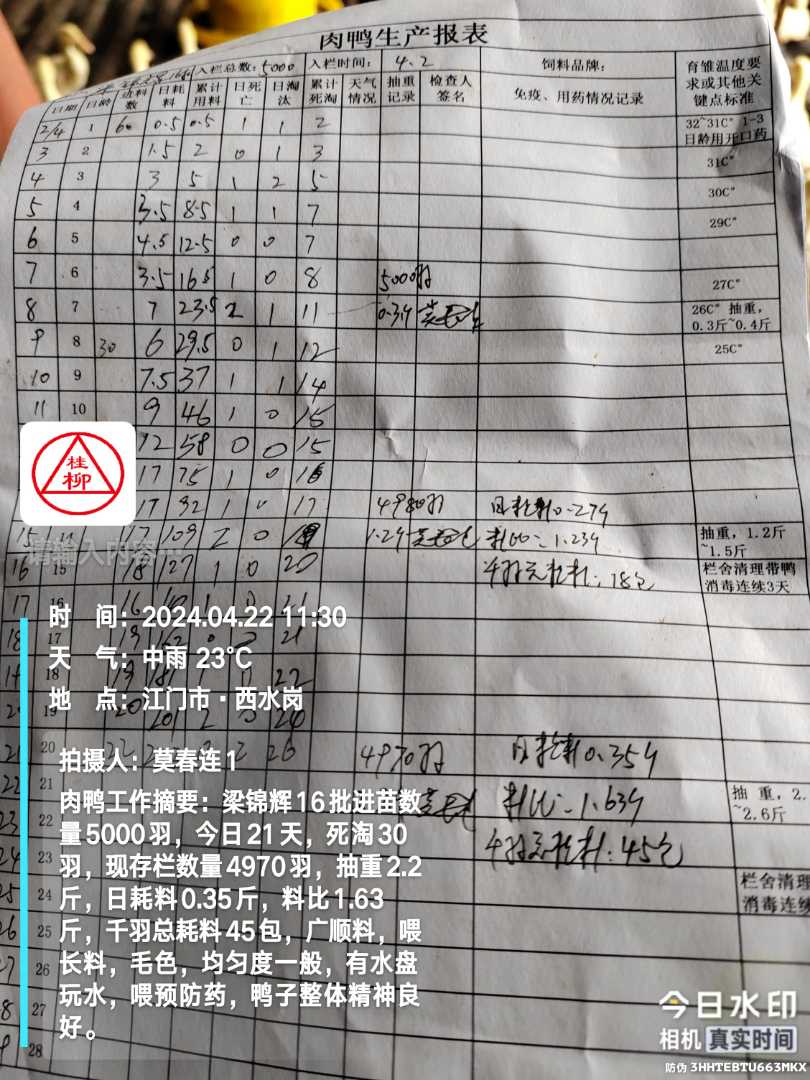 肉鸭生产报表
入栏总数: 5000 入栏时间: 4.2 饲料品牌: 育雏温度要求或其他关键点标准
日期 日龄 数 日耗料 累计用料 日死亡 日淘汰 累计死淘 天气情况 抽重记录 检查人签名 免疫、用药情况记录
2/4 1 60 0.5 0.5 1 1 2 32~31C° 1-3日龄用开口药
3 2 1.5 2 0 1 3 31C°
4 3 3 5 1 2 5 30C°
5 4 3.5 8.5 1 1 7 29C°
6 5 4.5 12.5 0 0 7
7 6 3.5 16.5 1 0 8 5000羽 27C°
8 7 7 23.5 2 1 11 0.3斤 26C° 抽重,0.3斤~0.4斤
9 8 30 6 29.5 0 1 12 25C°
10 9 7.5 37 1 1 14
11 10 9 46 1 0 15
12 58 0 0 15
17 75 1 0 16
17 92 1 0 17 4980羽 日耗料0.27斤
15 14 17 109 2 0 1.2斤 料比:1.23斤 抽重,1.2斤~1.5斤
16 15 18 127 1 0 20 千羽总耗料:18包 栏舍清理带鸭消毒连续3天
17 16 16 1 0 21
18 17 19 162 21
19 18 19 181 22
19 20 201 2 24
21 20 22 2 26 4970羽 日耗料0.35斤
22 21 料比:1.63斤 抽重,2. ~2.6斤
23 22 千羽总耗料:45包
24 23 栏舍清理 消毒连续
25 24
26 25
27 26
8 27
9 28
桂柳
请输入内容...
时 间:2024.04.22 11:30
天 气:中雨 23℃
地 点:江门市·西水岗
拍摄人:莫春连1
肉鸭工作摘要:梁锦辉16批进苗数
量5000羽,今日21天,死淘30
羽,现存栏数量4970羽,抽重2.2
斤,日耗料0.35斤,料比1.63
斤,千羽总耗料45包,广顺料,喂
长料,毛色,均匀度一般,有水盘
玩水,喂预防药,鸭子整体精神良
好。
今日水印
相机 真实时间
防伪 3HHTEBTU663MKX